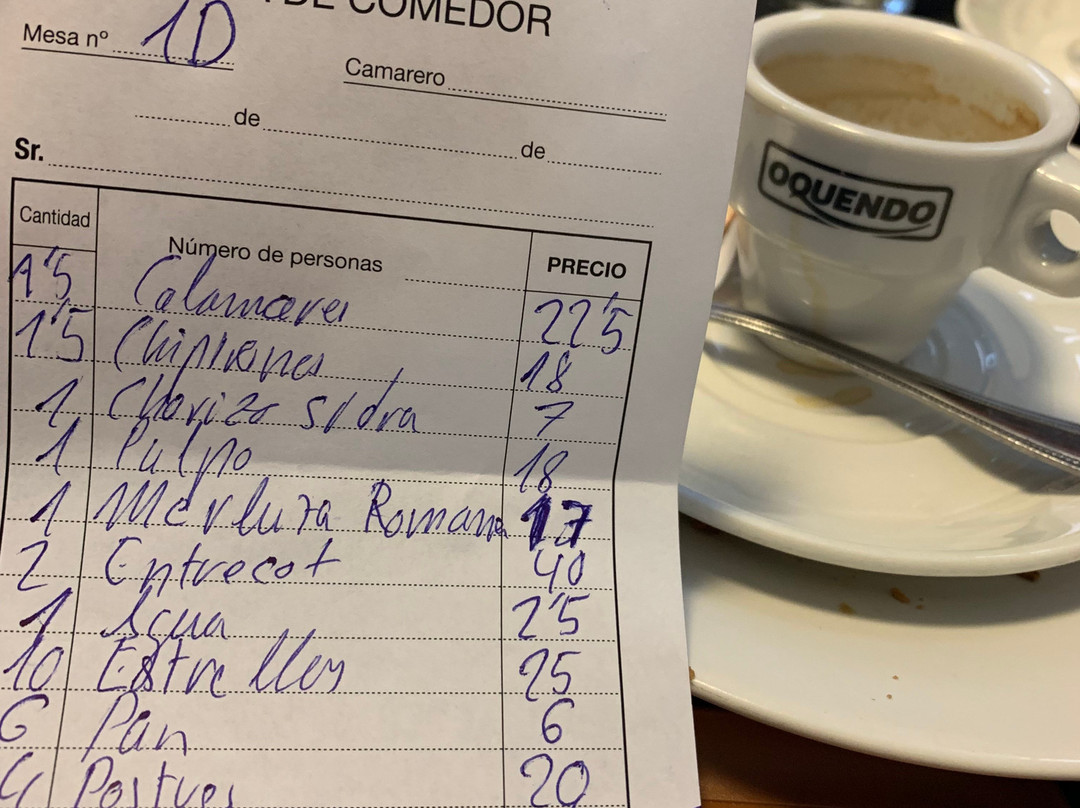 DE COMEDOR
Mesa nº 1D
Camarero
de de
Sr.
Cantidad Número de personas PRECIO
1'5 Calamares 22'5
1'5 Chipirones 18
1 Chorizo sidra 7
1 Pulpo 18
1 Merluza Romana 17
2 Entrecot 40
1 Agua 2'5
10 Estrellas 25
6 Pan 6
4 Postres 20
OQUENDO